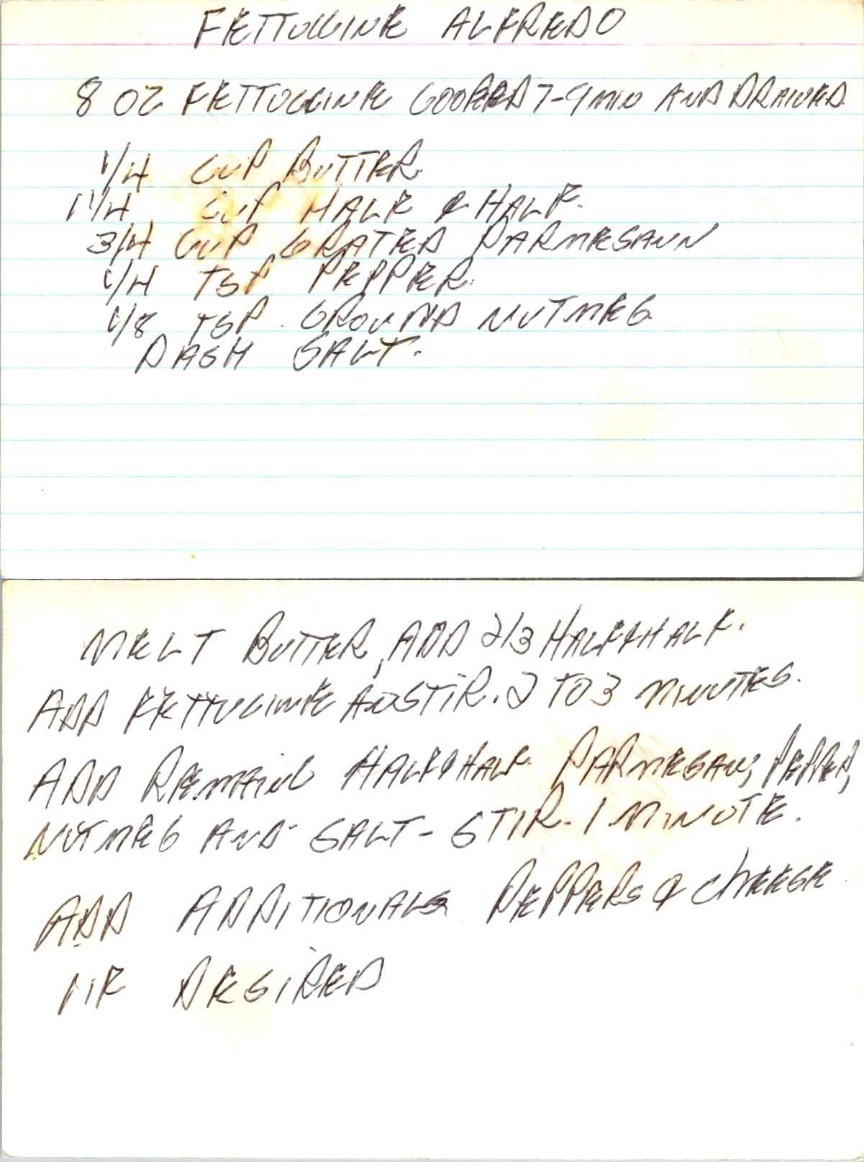 FETTUCCINE ALFREDO
8 OZ FETTUCCINE COOKED 7-9 MIN AND DRAINED
1/4 CUP BUTTER
1 1/4 CUP HALF & HALF.
3/4 CUP GRATED PARMESANN
1/4 TSP PEPPER.
1/8 TSP. GROUND NUTMEG
DASH SALT.
MELT BUTTER, ADD 2/3 HALF&HALF.
ADD FETTUCINE AND STIR. 2 TO 3 MINUTES.
ADD REMAING HALF&HALF PARMESAN, PEPPER,
NUTMEG AND SALT - STIR. 1 MINUTE.
ADD ADDITIONAL PEPPERS & CHEESE
IF DESIRED